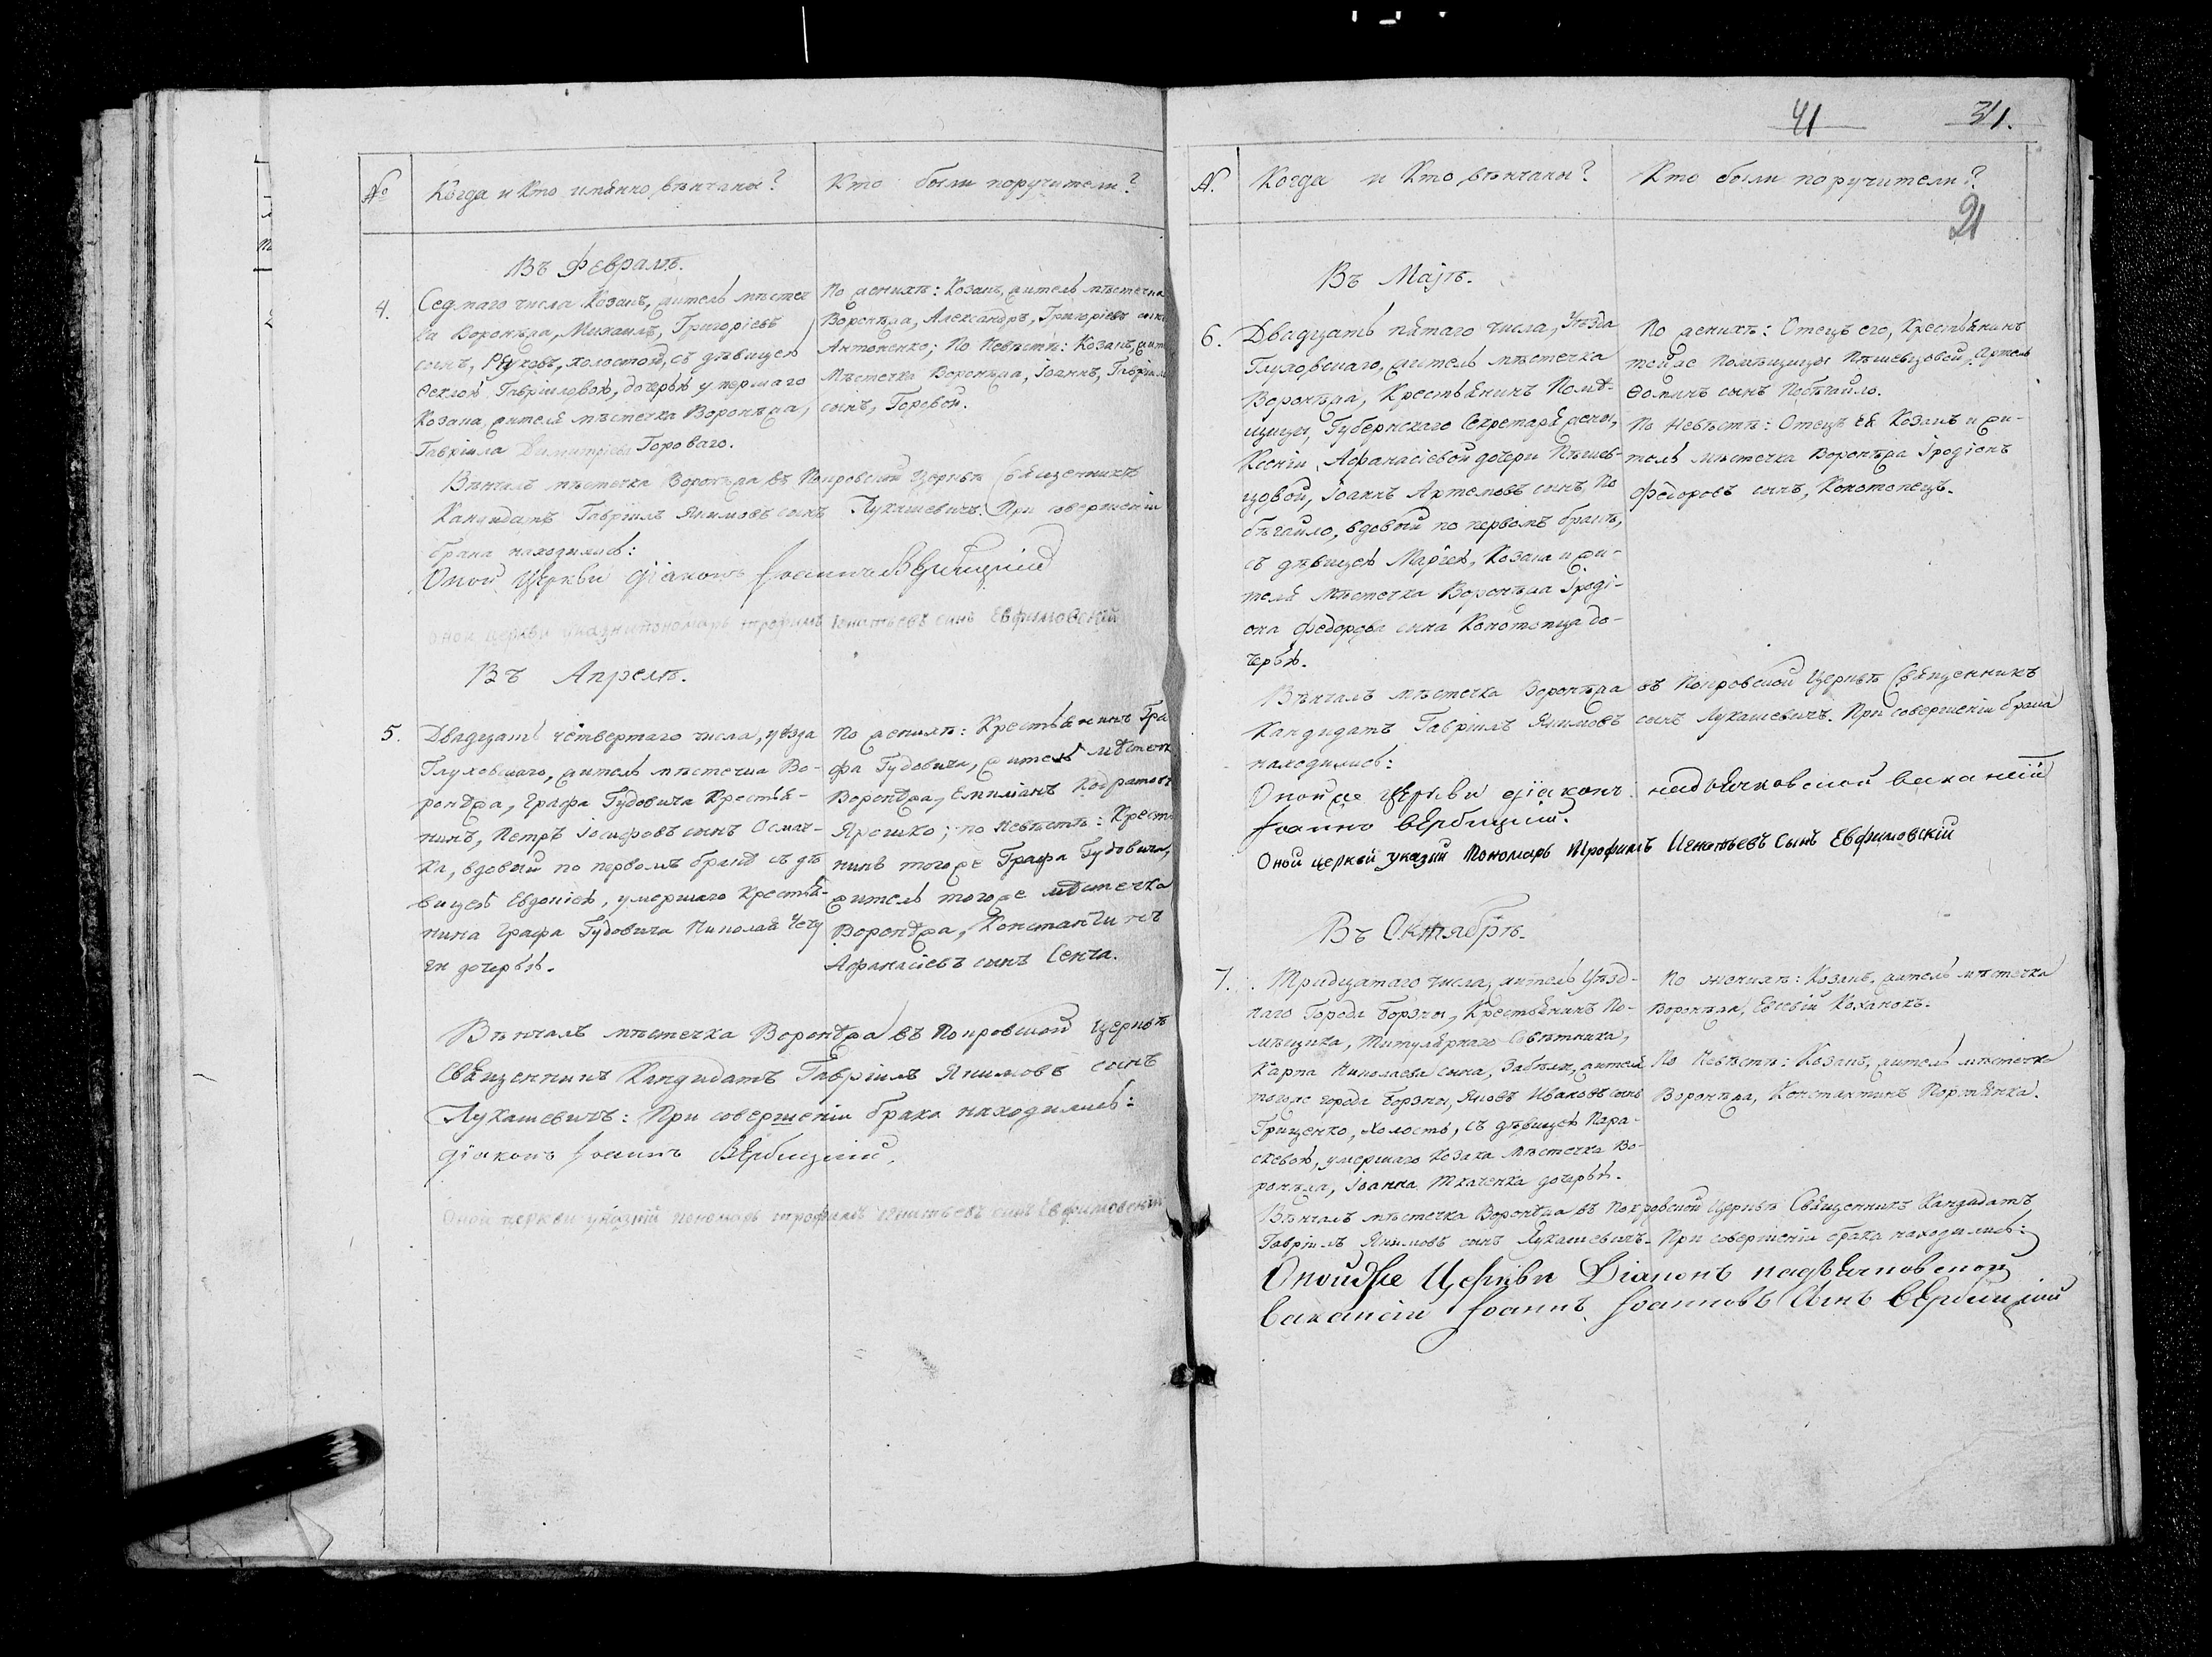 41 31.
№ Когда и Кто имянно вѣнчаны? Кто были поручители?
Въ Февралѣ.
4. Седмаго числа Козакъ, житель мѣстеч
ка Воронѣжа, Михаилъ, Григоріевъ
сынъ, холостой, съ дѣвицею
Ѳеклою Гавріиловою, дочерью умершаго
Козака жителя мѣстечка Воронѣжа,
Гавріила Димитріева Гороваго.
По женихѣ: Козакъ, житель мѣстечка
Воронѣжа, Александръ, Григоріевъ сынъ
Антоненко; По Невѣстѣ: Козакъ, жит
Мѣстечка Воронѣжа, Іоаннъ, Гавріил
сынъ, Горовой.
Вѣнчалъ мѣстечка Воронѣжа въ Покровской Церквѣ Священникъ
Кандидатъ Гавріилъ Якимовъ сынъ Лукашевичъ. При совершеніи
брака находились:
Оной Церкви діаконъ Іоаннъ Вербицкій
оной церкви указній пономарь трофимъ Игнатьевъ синъ Евфимовскій
Въ Апрелѣ.
5. Двадцать четвертаго числа, уѣзда
Глуховскаго, житель мѣстечка Во-
ронѣжа, Графа Гудовича Крестья-
нинъ, Петръ Іосифовъ сынъ Осмач-
ка, вдовый по первомъ бракѣ съ дѣ
вицею Евдокіею, умершаго Крестья-
нина Графа Гудовича Николая Чечу
ги дочерью.
По женихѣ: Крестьянинъ Гра
фа Гудовича, житель мѣстечк
Воронѣжа, Емиліанъ Кодратовъ
Ярошко; по Невѣстѣ: Кресть
нинъ тогоже Графа Гудовича,
житель тогоже мѣстечка
Воронѣжа, Константинъ
Афанасіевъ сынъ Сенча.
Вѣнчалъ мѣстечка Воронѣжа въ Покровской Церквѣ
Священникъ Кандидатъ Гавріилъ Якимовъ сынъ
Лукашевичъ: При совершеніи брака находились:
діаконъ Іоаннъ Вербицкій.
Оной церкви указній пономарь трофимъ игнатьевъ синъ Евфимовскій
№. Когда и Кто вѣнчаны? Кто были поручители?
21
Въ Маjѣ.
6. Двадцать пятаго числа, Уѣзда
Глуховскаго, житель мѣстечка
Воронѣжа, Крестьянинъ Помѣ-
щицы, Губернскаго Секретаря жены,
Ксеніи, Афанасіевой дочери Пѣшев-
цовой, Іоаннъ Артемовъ сынъ, По
бѣгайло, вдовый по первомъ бракѣ,
съ дѣвицею Маріею, Козака и жи-
теля Мѣстечка Воронѣжа Іроді-
она Федорова сына Конотопца до-
черью.
По женихѣ: Отецъ его, Крестьянинъ
тойже Помѣщицы Пѣшевцовой, Артемъ
Ѳоминъ сынъ Побѣгайло.
По Невѣстѣ: Отецъ ея Козакъ и жи-
тель мѣстечка Воронѣжа Іродіонъ
Федоровъ сынъ, Конотопецъ.
Вѣнчалъ мѣстечка Воронѣжа въ Покровской Церквѣ Священникъ
Кандидатъ Гавріилъ Якимовъ сынъ Лукашевичъ. При совершеніи брака
находились:
Оной же Церкви діаконъ надьячковской ваканціи
Іоаннъ Вербицкій.
Оной церкви указній Пономарь Трофимъ Игнатьевъ Сынъ Евфимовскій
Въ Октябрѣ.
7. Тридцатаго числа, житель Уѣзд-
наго Города Борзны, Крестьянинъ По-
мѣщика, Титулярнаго Совѣтника,
Карпа Николаева сына, Забѣлы, житель
тогоже города Борзны, Яковъ Ивановъ сынъ
Гриценко, холостъ, съ дѣвицею Пара-
скевою, умершаго Козака Мѣстечка Во-
ронѣжа, Іоанна Ткаченка дочерью.
По женихѣ: Козакъ, житель мѣстечка
Воронѣжа, Евсевій Коханокъ.
По Невѣстѣ: Козакъ, житель мѣстечка
Воронѣжа, Константинъ Портянка.
Вѣнчалъ мѣстечка Воронѣжа въ Покровской Церквѣ Священникъ Кандидатъ
Гавріилъ Якимовъ сынъ Лукашевичъ. При совершеніи брака находились:
Оной же Церкви Діаконъ надьячковской
Ваканціи Іоаннъ Іоанновъ Сынъ Вербицкій